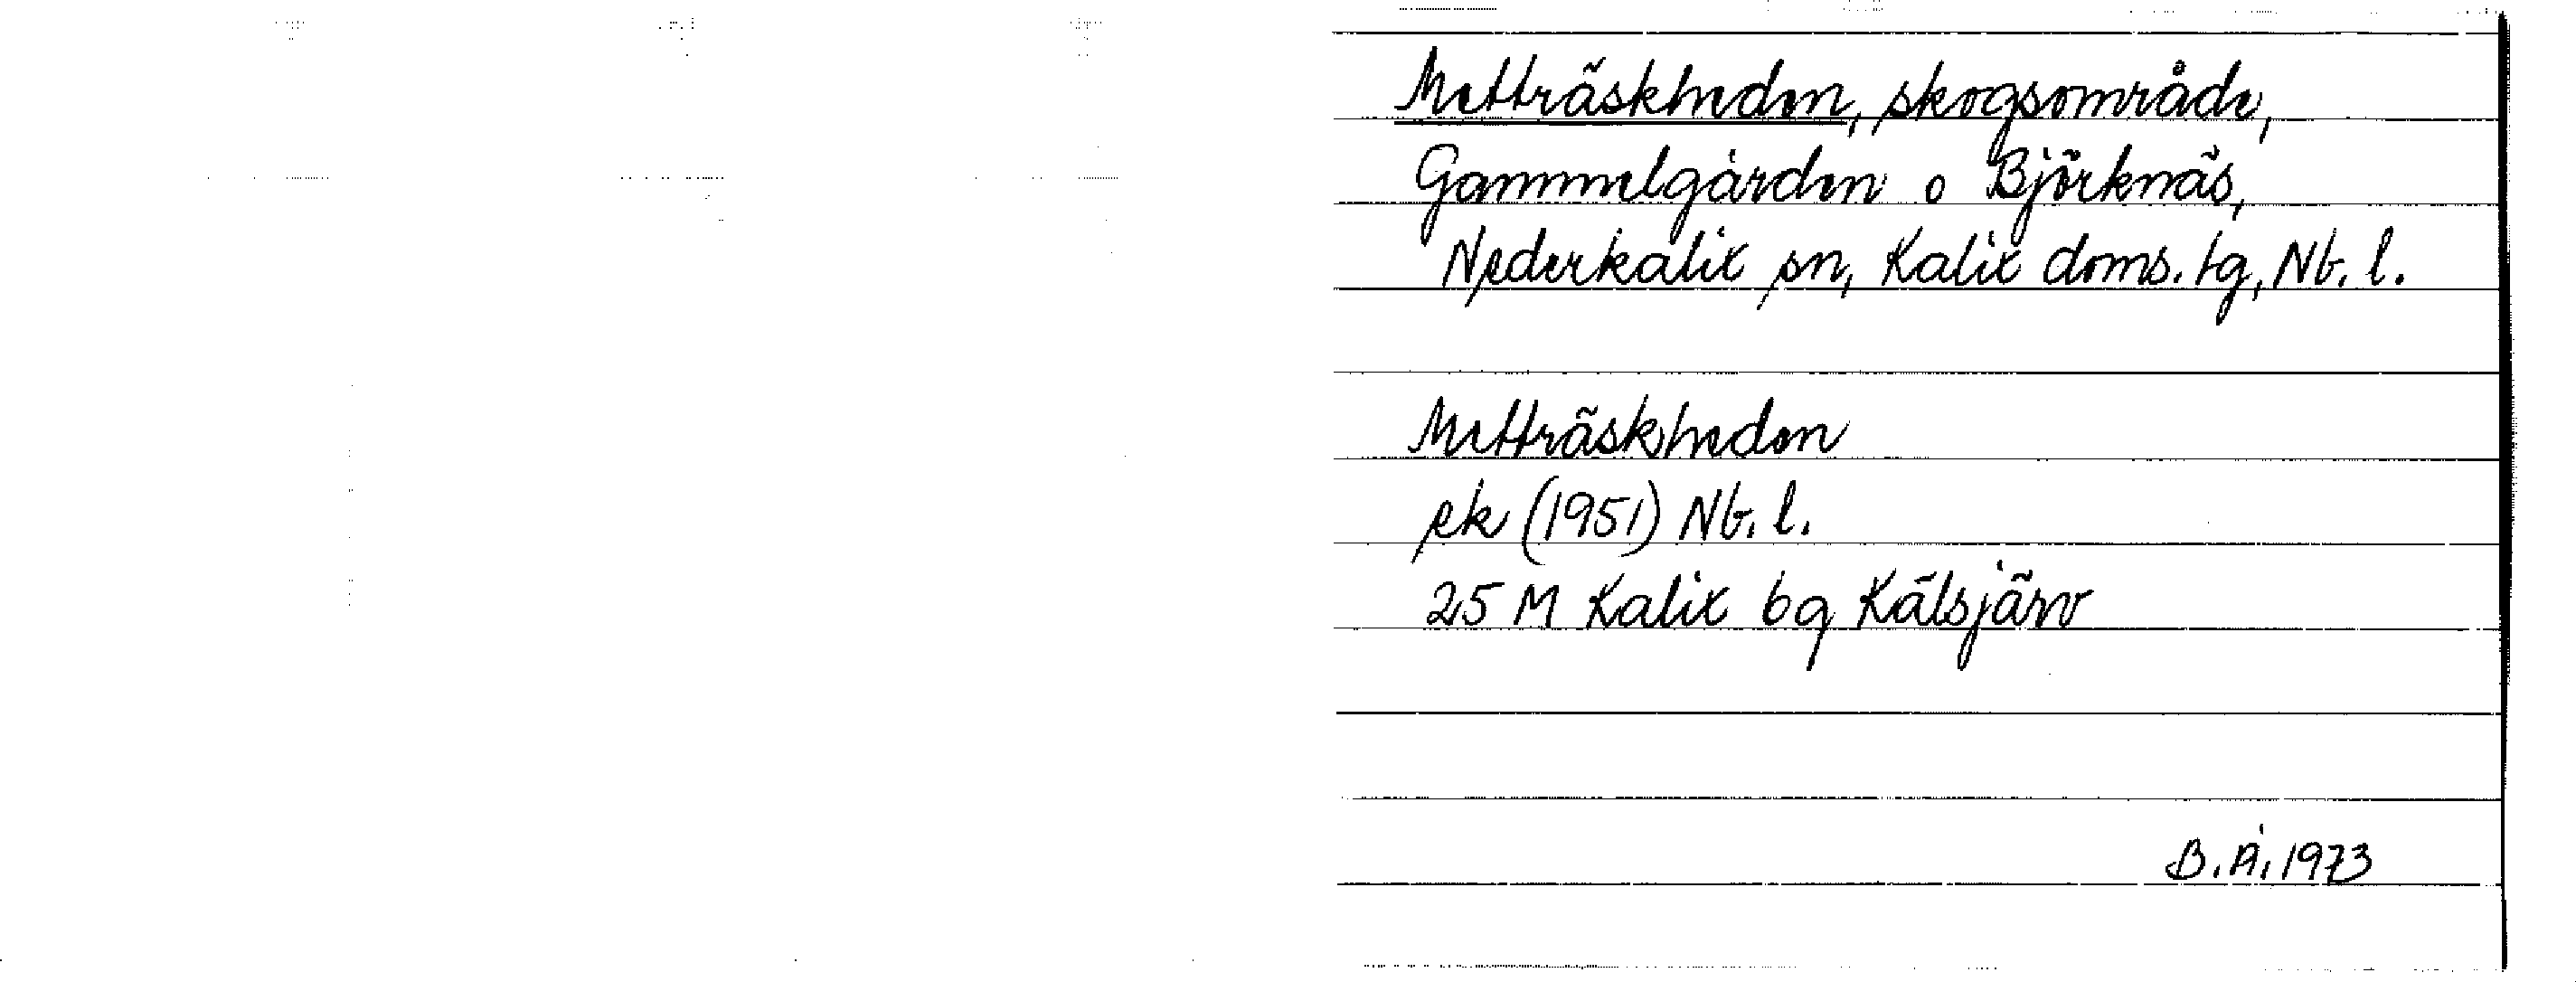 Metträskheden, skogsområde,
Gammelgården o Björknäs,
Nederkalix sn, Kalix doms. tg, Nb. l.
Metträskheden
ek (1951) Nb. l.
25 M Kalix 6g Kälsjärv
B.Å. 1973